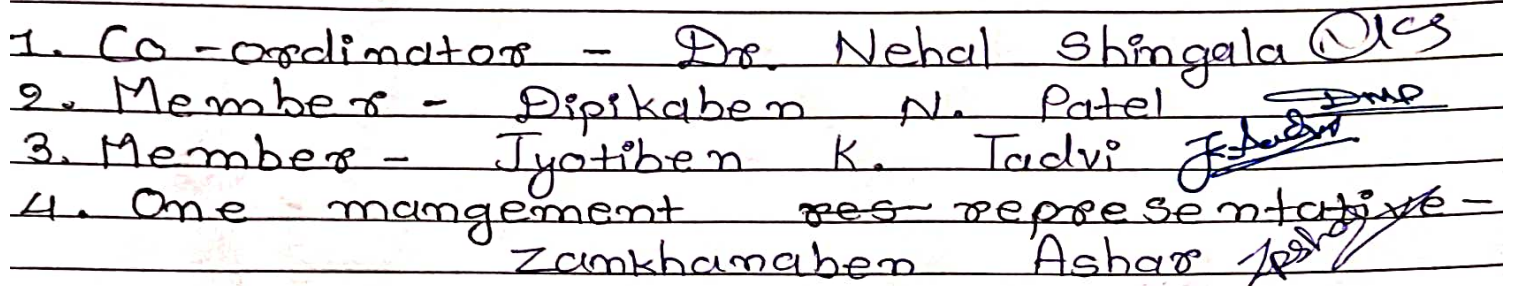 1. Co-ordinator - Dr. Nehal Shingala
2. Member - Dipikaben N. Patel DMP
3. Member - Jyotiben K. Tadvi
4. One mangement res representative -
Zamkhanaben Ashar